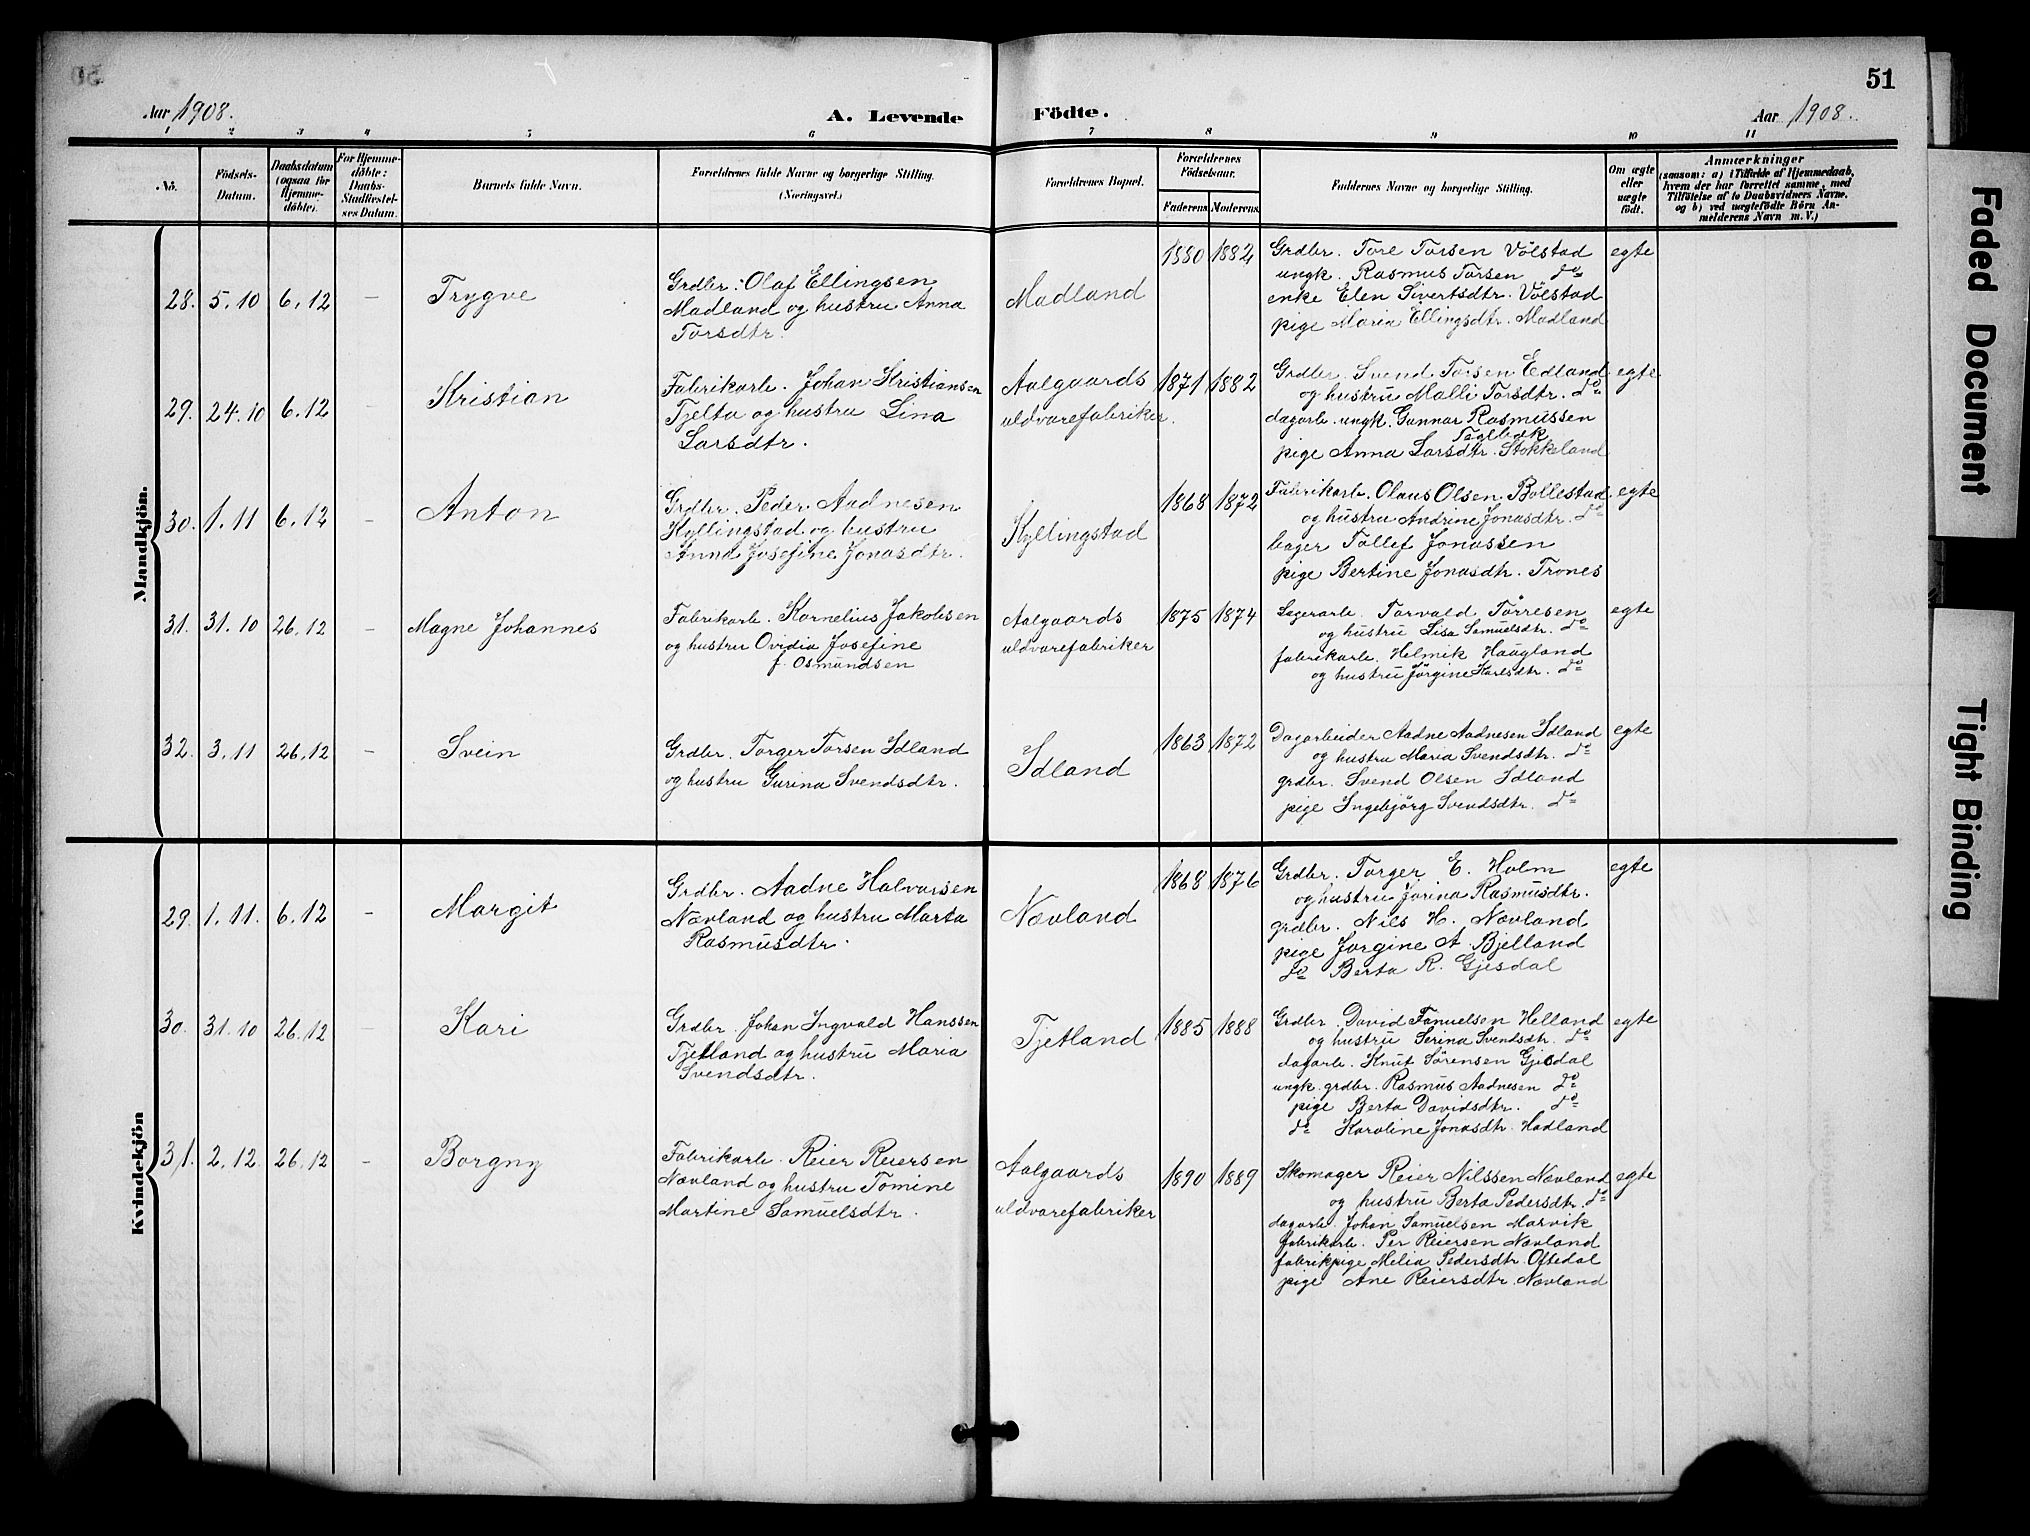 51
Aar 1908.
A. Levende Födte.
Aar 1908.
1 2 3 4 5 6 7 8 9 10 11
No.
Födsels-Datum.
Daabsdatum (ogsaa for Hjemme-döbte).
For Hjemme-döbte: Daabs-Stadfæstel-ses Datum.
Barnets fulde Navn.
Forældrenes fulde Navne og borgerlige Stilling. (Næringsvei.)
Forældrenes Bopæl.
Forældrenes Födselsaar.
Faderens. Moderens.
Faddernes Navne og borgerlige Stilling.
Om ægte eller uægte födt.
Anmærkninger
(saasom: a) i Tilfælde af Hjemmedaab,
hvem der har forrettet samme, med
Tilföielse af to Daabsvidners Navne.
og b) ved uægtefödte Börn An-
melderens Navn m. V.)
Mandkjön.
28. 5.10 6.12 - Trygve
Grdbr. Olaf Ellingsen
Madland og hustru Anna
Torsdtr.
Madland
1880 1882
Grdbr. Tore Torsen Völstad
ungk. Rasmus Torsen do
enke Elen Sivertsdtr. Völstad
pige Maria Ellingsdtr. Madland
egte
29. 24.10 6.12 - Kristian
Fabrikarb. Johan Kristiansen
Tjelta og hustru Lina
Larsdtr.
Aalgaards
uldvarefabriker.
1871 1882
Grdbr. Svend Torsen Edland
og hustru Malli Torsdtr. do
dagarb. ungk. Gunnar Rasmussen
pige Anna Larsdtr. Stokkeland
egte
30. 1.11 6.12 - Anton
Grdbr. Peder Aadnesen
Kyllingstad og hustru
Anna Josefine Jonasdtr.
Kyllingstad
1868 1872
Fabrikarb. Olaus Olsen Bollestad
og hustru Andrine Jonasdtr. do
bager Tollef Jonassen
pige Bertine Jonasdtr. Trones
egte
31. 31.10 26.12 - Magne Johannes
Fabrikarb. Kornelius Jakobsen
og hustru Ovidia Josefine
f. Osmundsen
Aalgaards
uldvarefabriker
1875 1874
Lagerarb. Torvald Tørresen
og hustru Lisa Samuelsdtr. do
fabrikarb. Helmik Haugland
og hustru Jörgine Karlsdtr. do
egte
32. 3.11 26.12 - Svein
Grdbr. Torger Torsen Idland
og hustru Gurina Svendsdtr.
Idland
1863 1872
Dagarbeider Aadne Aadnesen Idland
og hustru Maria Svendsdtr. do
grdbr. Svend Olsen Idland
pige Ingebjörg Svendsdtr. do
egte
Kvindekjön
29. 1.11. 6.12 - Margit
Grdbr. Aadne Halvorsen
Nævland og hustru Marta
Rasmusdtr.
Nævland
1868 1876
Grdbr. Torger E. Holm
og hustru Jorina Rasmusdtr.
grdbr. Nils H. Nævland
pige Jorgine A. Bjelland
do Berta R. Gjesdal
egte
30. 31.10 26.12 Kari
Grdbr. Johan Ingvald Hanssen
Tjetland og hustru Maria
Svendsdtr.
Tjetland
1885 1888
Grdbr. David Famuelsen Helland
og hustru Serina Svendsdtr. do
dagarb. Knut Sørensen Gjesdal
ungk. grdbr. Rasmus Aadnesen do
pige Berta Davidsdtr. do
do Karoline Jonasdtr. Hadland
egte
31. 2.12. 26.12 - Borgny
Fabrikarb. Reier Reiersen
Nævland og hustru Tomine
Martine Samuelsdtr.
Aalgaards
uldvarefabriker
1890 1889
Skomager Reier Nilssen Nævland
og hustru Berta Pedersdtr. do
dagarb. Johan Samuelsen Masvik
fabrikarb. Per Reiersen Nævland
fabrikpige Melia Pedersdtr. Oftedal
pige Ane Reiersdtr. Nævland
egte
Faded Document
Tight Binding